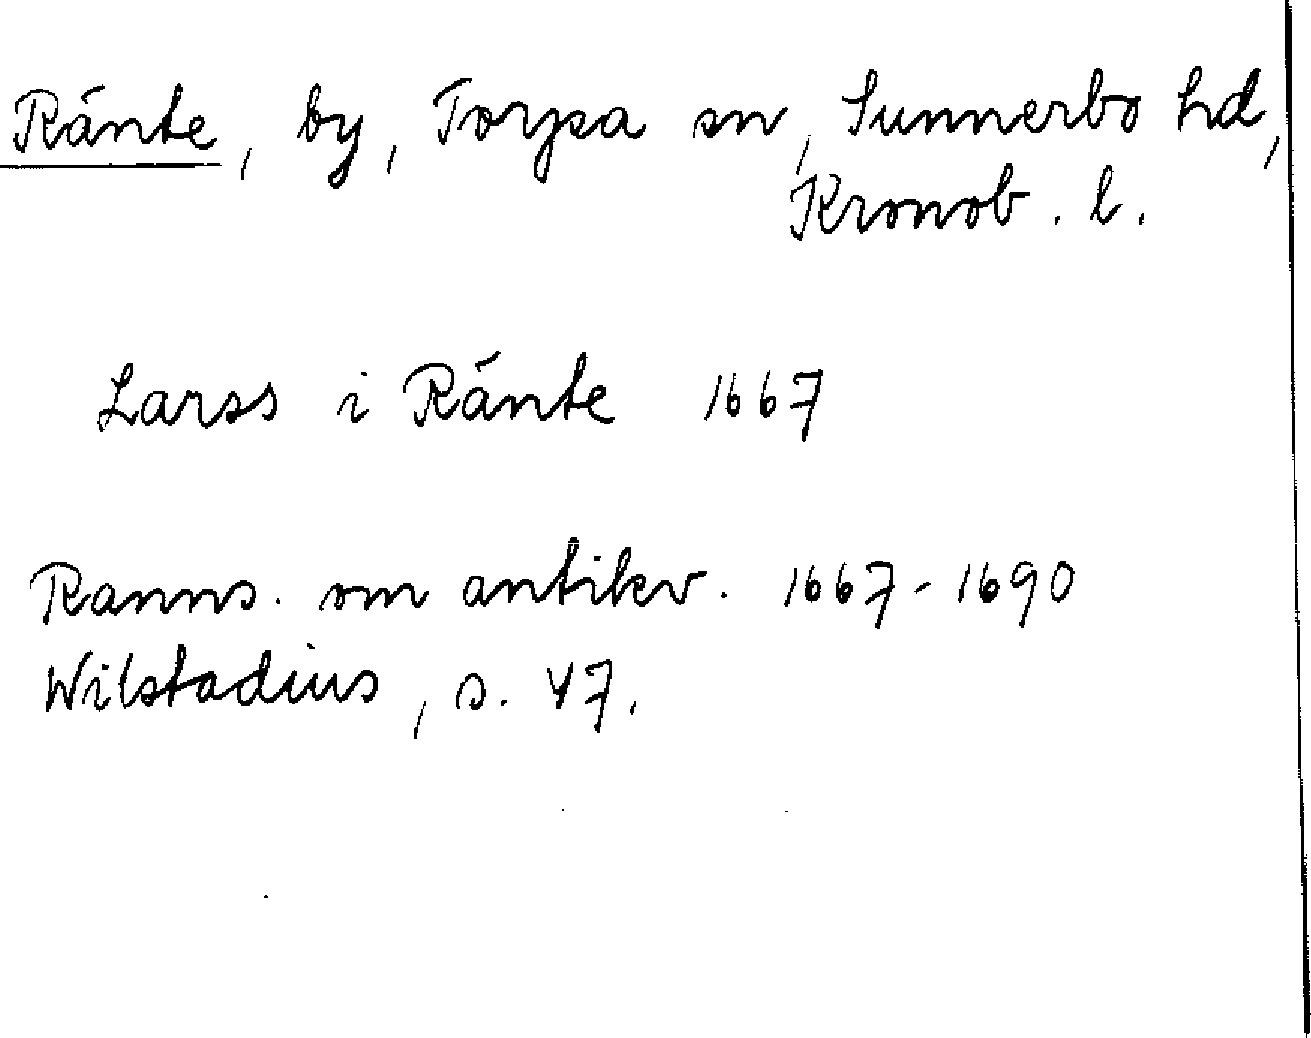 Ränte, by, Torpa sn, Sunnerbo hd,
Kronob. l.
Larss i Ränte 1667
Ranns. om antikv. 1667-1690
Wilstadius, s. 47.